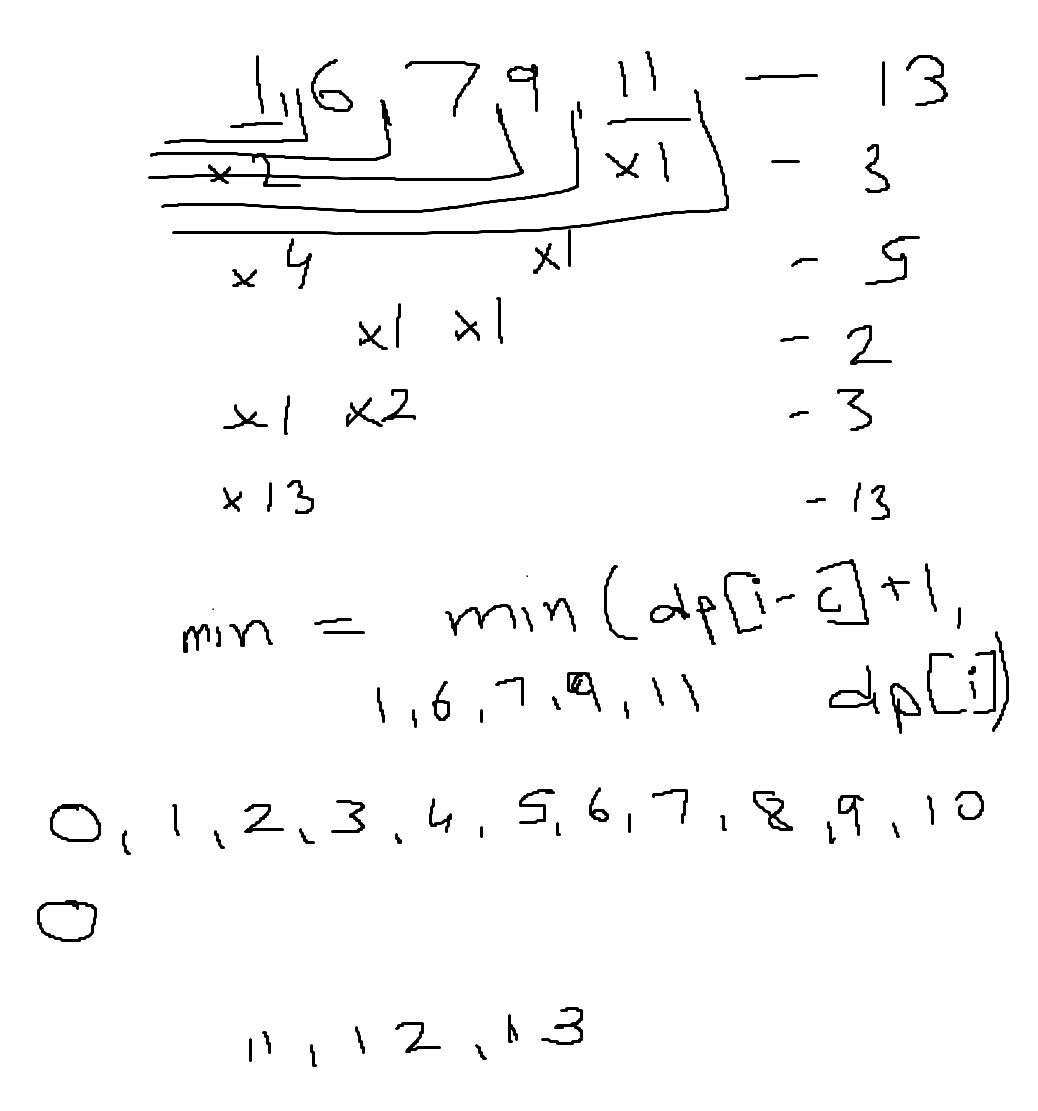 1, 6, 7, 9, 11 — 13
x2 x1 - 3
x4 x1 - 5
x1 x1 - 2
x1 x2 - 3
x13 - 13
min = min(dp[i-c]+1,
1,6,7,9,11 dp[i])
0,1,2,3,4,5,6,7,8,9,10
0
11,12,13